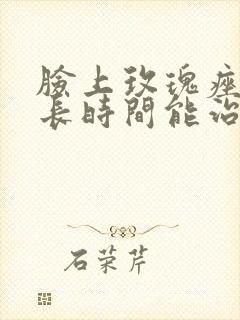 臉上玫瑰痤
長時間能治
石荣芹